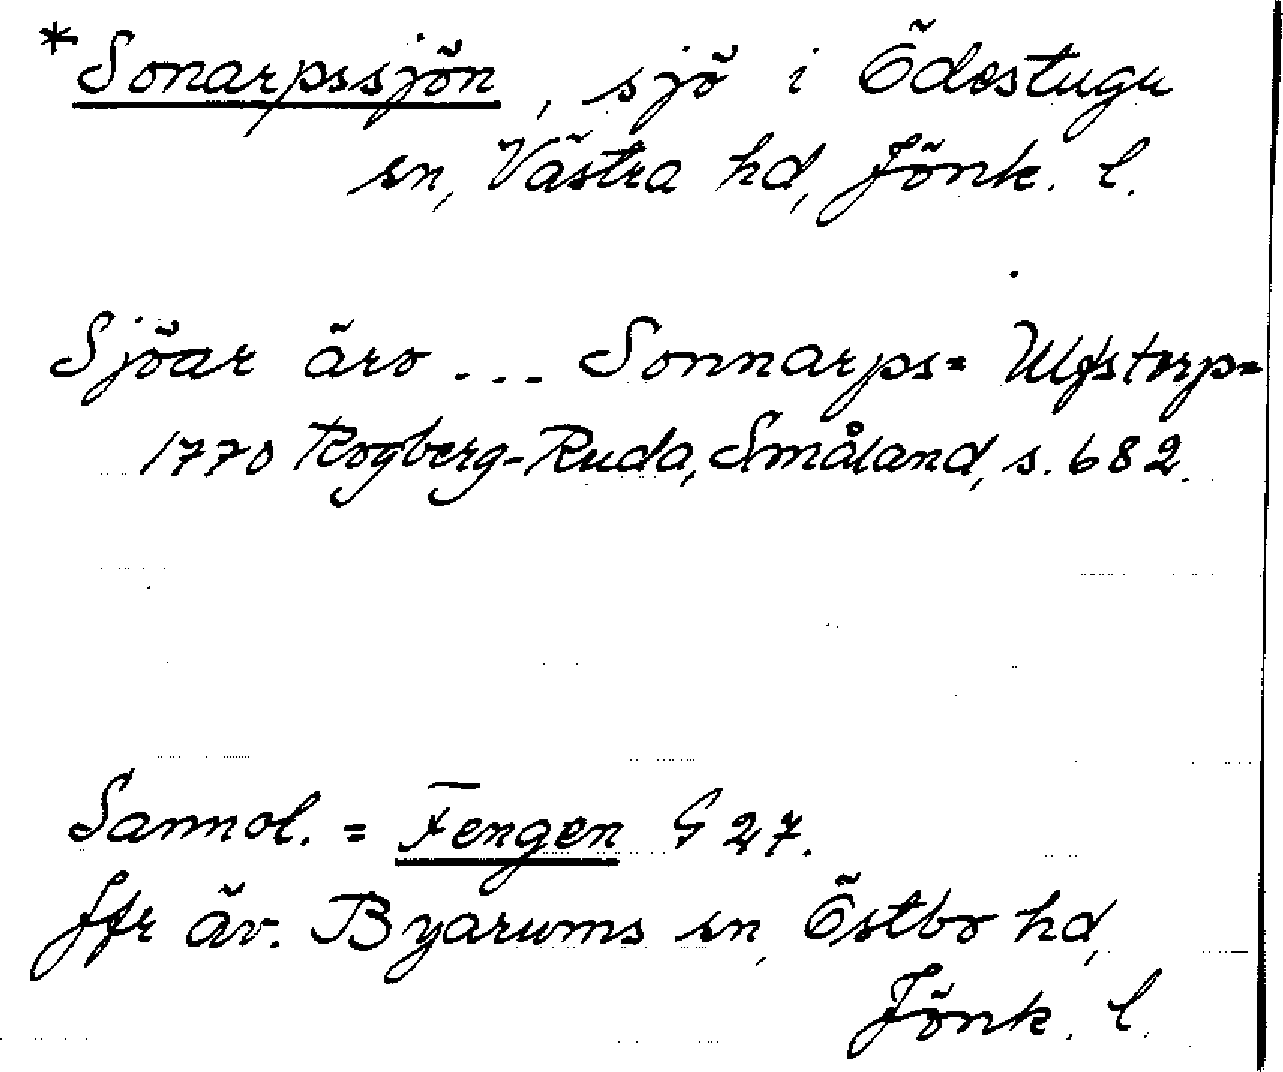 *Sonarpssjön, sjö i Ödestugu
sn, Västra hd, Jönk. l.
Sjöar äro ... Sonnarps= Ulfstorp=
1770 Rogberg-Ruda, Småland, s. 682.
Sannol. = Fengen G 27.
Jfr äv. Byarums sn, Östbo hd,
Jönk. l.